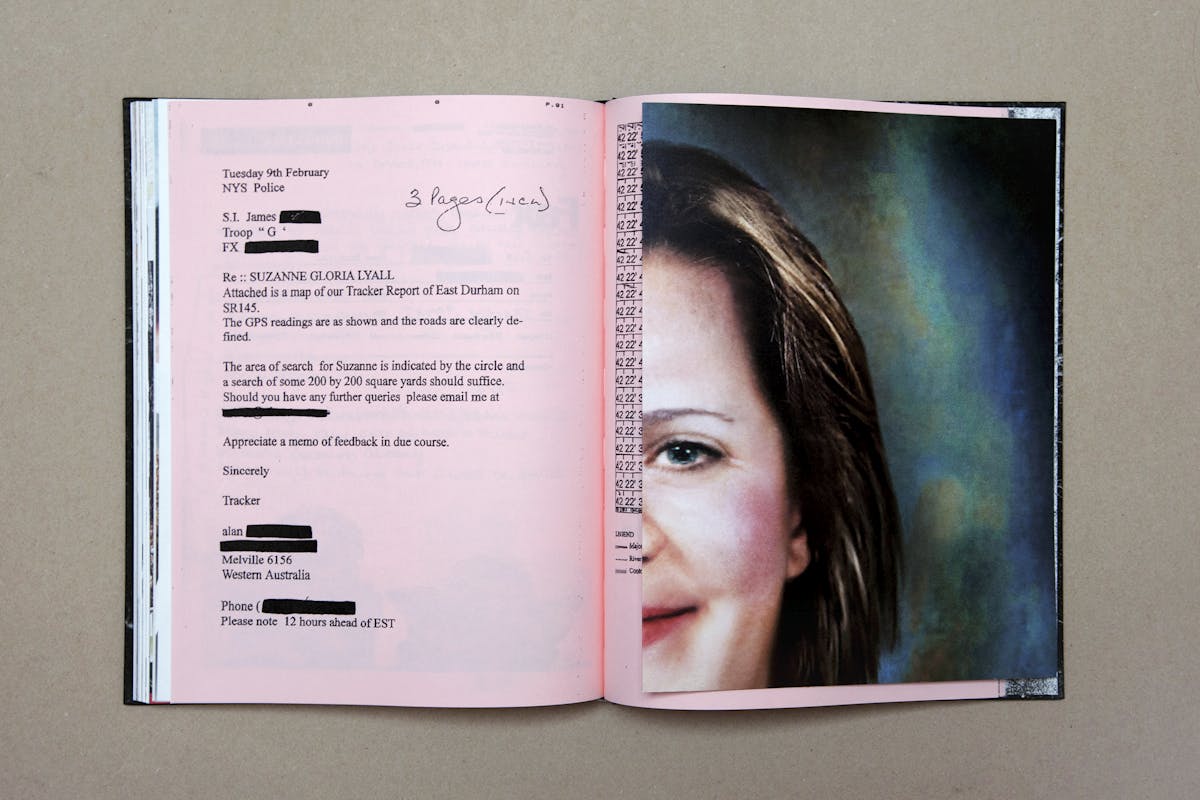 P.01
Tuesday 9th February
NYS Police
3 Pages (incn)
S.I. James
Troop “ G ‘
FX
Re :: SUZANNE GLORIA LYALL
Attached is a map of our Tracker Report of East Durham on
SR145.
The GPS readings are as shown and the roads are clearly de-
fined.
The area of search for Suzanne is indicated by the circle and
a search of some 200 by 200 square yards should suffice.
Should you have any further queries please email me at
Appreciate a memo of feedback in due course.
Sincerely
Tracker
alan
Melville 6156
Western Australia
Phone (
Please note 12 hours ahead of EST
42 22'
42 22'
42 22'
42 22'
42 22'
42 22'
42 22' 4
42 22' 4
42 22' 4
42 22' 4
42 22' 4
42 22' 4
42 22' 4
42 22' 4
42 22' 4
42 22' 3
42 22' 3
42 22' 3
42 22' 3
42 22' 3
LEGEND
Major
River
Conto